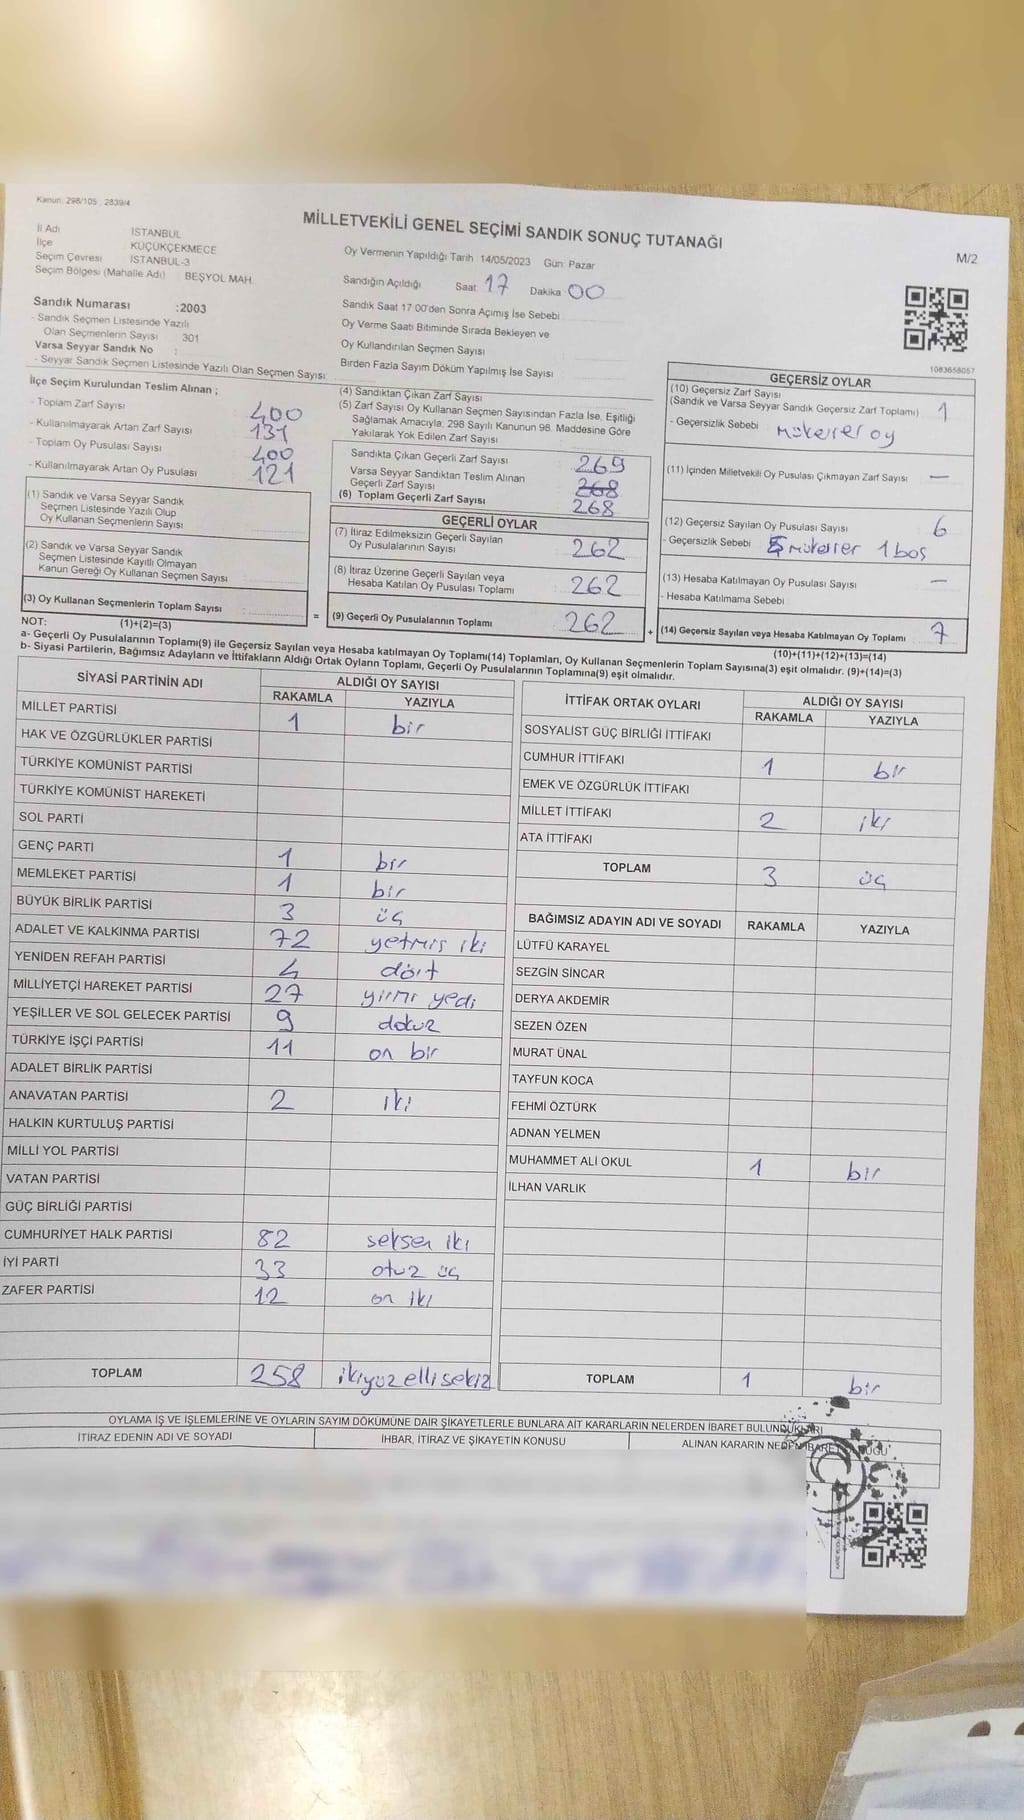 Kanun: 298/105 , 2839/4
MİLLETVEKİLİ GENEL SEÇİMİ SANDIK SONUÇ TUTANAĞI
M/2
İl Adı İSTANBUL
İlçe KÜÇÜKÇEKMECE
Seçim Çevresi İSTANBUL-3
Seçim Bölgesi (Mahalle Adı) BEŞYOL MAH.
Sandık Numarası :2003
- Sandık Seçmen Listesinde Yazılı
Olan Seçmenlerin Sayısı 301
Varsa Seyyar Sandık No :
- Seyyar Sandık Seçmen Listesinde Yazılı Olan Seçmen Sayısı:
Oy Vermenin Yapıldığı Tarih 14/05/2023 Gün: Pazar
Sandığın Açıldığı Saat 17 Dakika 00
Sandık Saat 17:00'den Sonra Açımış İse Sebebi
Oy Verme Saati Bitiminde Sırada Bekleyen ve
Oy Kullandırılan Seçmen Sayısı
Birden Fazla Sayım Döküm Yapılmış İse Sayısı
1083658057
İlçe Seçim Kurulundan Teslim Alınan ;
- Toplam Zarf Sayısı 400
- Kullanılmayarak Artan Zarf Sayısı 131
- Toplam Oy Pusulası Sayısı 400
- Kullanılmayarak Artan Oy Pusulası 121
(1) Sandık ve Varsa Seyyar Sandık
Seçmen Listesinde Yazılı Olup
Oy Kullanan Seçmenlerin Sayısı
(2) Sandık ve Varsa Seyyar Sandık
Seçmen Listesinde Kayıtlı Olmayan
Kanun Gereği Oy Kullanan Seçmen Sayısı
(3) Oy Kullanan Seçmenlerin Toplam Sayısı :
(1)+(2)=(3)
(4) Sandıktan Çıkan Zarf Sayısı
(5) Zarf Sayısı Oy Kullanan Seçmen Sayısından Fazla İse, Eşitliği
Sağlamak Amacıyla; 298 Sayılı Kanunun 98. Maddesine Göre
Yakılarak Yok Edilen Zarf Sayısı
Sandıkta Çıkan Geçerli Zarf Sayısı 269
Varsa Seyyar Sandıktan Teslim Alınan
Geçerli Zarf Sayısı 268
(6) Toplam Geçerli Zarf Sayısı 268
GEÇERLİ OYLAR
(7) İtiraz Edilmeksizin Geçerli Sayılan
Oy Pusulalarının Sayısı 262
(8) İtiraz Üzerine Geçerli Sayılan veya
Hesaba Katılan Oy Pusulası Toplamı 262
= (9) Geçerli Oy Pusulalarının Toplamı 262 +
GEÇERSİZ OYLAR
(10) Geçersiz Zarf Sayısı
(Sandık ve Varsa Seyyar Sandık Geçersiz Zarf Toplamı) 1
- Geçersizlik Sebebi mükerer oy
(11) İçinden Milletvekili Oy Pusulası Çıkmayan Zarf Sayısı —
(12) Geçersiz Sayılan Oy Pusulası Sayısı 6
- Geçersizlik Sebebi 5 mükerrer 1 boş
(13) Hesaba Katılmayan Oy Pusulası Sayısı —
- Hesaba Katılmama Sebebi
(14) Geçersiz Sayılan veya Hesaba Katılmayan Oy Toplamı 7
(10)+(11)+(12)+(13)=(14)
NOT:
a- Geçerli Oy Pusulalarının Toplamı(9) ile Geçersiz Sayılan veya Hesaba katılmayan Oy Toplamı(14) Toplamları, Oy Kullanan Seçmenlerin Toplam Sayısına(3) eşit olmalıdır. (9)+(14)=(3)
b- Siyasi Partilerin, Bağımsız Adayların ve İttifakların Aldığı Ortak Oyların Toplamı, Geçerli Oy Pusulalarının Toplamına(9) eşit olmalıdır.
SİYASİ PARTİNİN ADI ALDIĞI OY SAYISI
RAKAMLA YAZIYLA
MİLLET PARTİSİ 1 bir
HAK VE ÖZGÜRLÜKLER PARTİSİ
TÜRKİYE KOMÜNİST PARTİSİ
TÜRKİYE KOMÜNİST HAREKETİ
SOL PARTİ
GENÇ PARTİ 1 bir
MEMLEKET PARTİSİ 1 bir
BÜYÜK BİRLİK PARTİSİ 3 üç
ADALET VE KALKINMA PARTİSİ 72 yetmiş iki
YENİDEN REFAH PARTİSİ 4 dört
MİLLİYETÇİ HAREKET PARTİSİ 27 yirmi yedi
YEŞİLLER VE SOL GELECEK PARTİSİ 9 dokuz
TÜRKİYE İŞÇİ PARTİSİ 11 on bir
ADALET BİRLİK PARTİSİ
ANAVATAN PARTİSİ 2 iki
HALKIN KURTULUŞ PARTİSİ
MİLLİ YOL PARTİSİ
VATAN PARTİSİ
GÜÇ BİRLİĞİ PARTİSİ
CUMHURİYET HALK PARTİSİ 82 seksen iki
İYİ PARTİ 33 otuz üç
ZAFER PARTİSİ 12 on iki
TOPLAM 258 ikiyüzellisekiz
İTTİFAK ORTAK OYLARI ALDIĞI OY SAYISI
RAKAMLA YAZIYLA
SOSYALİST GÜÇ BİRLİĞİ İTTİFAKI
CUMHUR İTTİFAKI 1 bir
EMEK VE ÖZGÜRLÜK İTTİFAKI
MİLLET İTTİFAKI 2 iki
ATA İTTİFAKI
TOPLAM 3 üç
BAĞIMSIZ ADAYIN ADI VE SOYADI RAKAMLA YAZIYLA
LÜTFÜ KARAYEL
SEZGİN SİNCAR
DERYA AKDEMİR
SEZEN ÖZEN
MURAT ÜNAL
TAYFUN KOCA
FEHMİ ÖZTÜRK
ADNAN YELMEN
MUHAMMET ALİ OKUL 1 bir
İLHAN VARLIK
TOPLAM 1 bir
OYLAMA İŞ VE İŞLEMLERİNE VE OYLARIN SAYIM DÖKÜMÜNE DAİR ŞİKAYETLERLE BUNLARA AİT KARARLARIN NELERDEN İBARET BULUNDUKLARI
İTİRAZ EDENİN ADI VE SOYADI İHBAR, İTİRAZ VE ŞİKAYETİN KONUSU ALINAN KARARIN NEDEN İBARET OLDUĞU